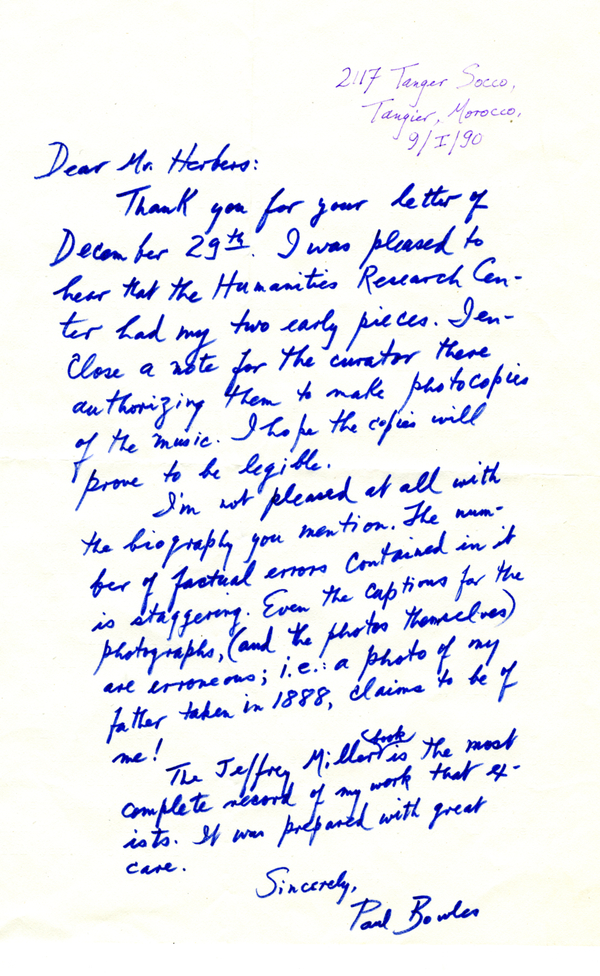 2117 Tanger Socco,
Tangier, Morocco,
9/I/90
Dear Mr. Herbers:
Thank you for your letter of
December 29th. I was pleased to
hear that the Humanities Research Cen-
ter had my two early pieces. I en-
close a note for the curator there
authorizing them to make photocopies
of the music. I hope the copies will
prove to be legible.
I'm not pleased at all with
the biography you mention. The num-
ber of factual errors contained in it
is staggering. Even the captions for the
photographs, (and the photos themselves)
are erroneous; i.e.: a photo of my
father taken in 1888, claims to be of
me!
The Jeffrey Miller book is the most
complete record of my work that ex-
ists. It was prepared with great
care.
Sincerely,
Paul Bowles